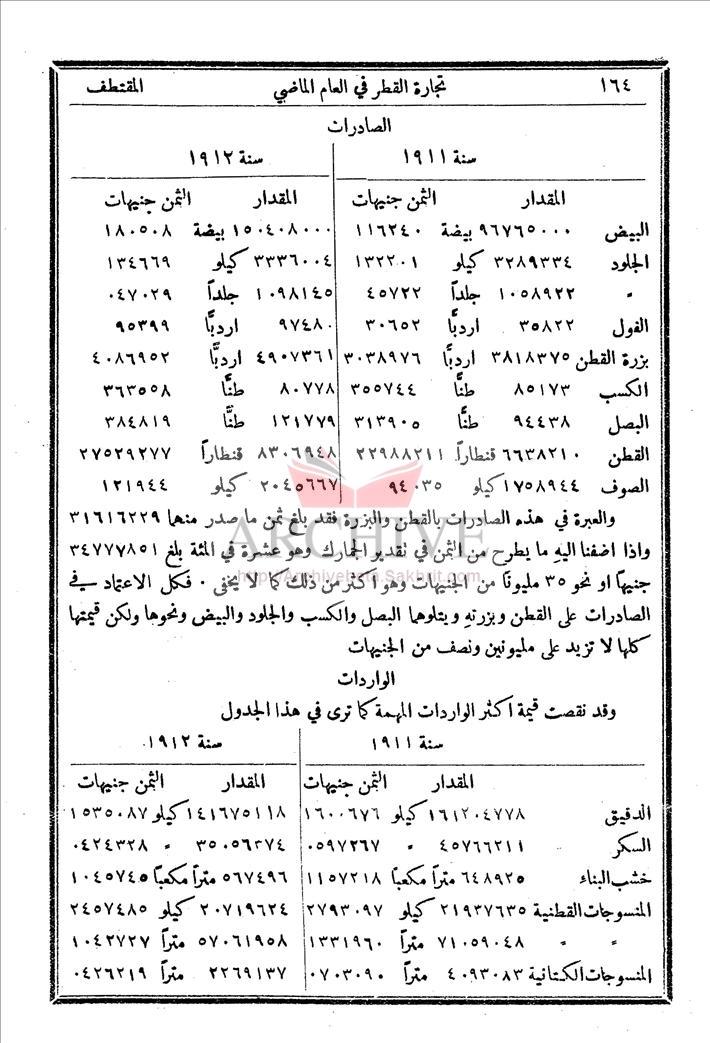 ١٦٤ تجارة القطر في العام الماضي المقتطف
الصادرات
سنة ١٩١١ سنة ١٩١٢
المقدار الثمن جنيهات المقدار الثمن جنيهات
البيض ٩٦٧٦٥٠٠٠ بيضة ١١٦٢٤٠ ١٥٠٤٠٨٠٠٠ بيضة ١٨٠٥٠٨
الجلود ٣٢٨٩٣٣٤ كيلو ١٣٢٢٠١ ٣٣٣٦٠٠٤ كيلو ١٣٤٦٦٩
" ١٠٥٨٩٢٢ جلداً ٤٥٧٢٢ ١٠٩٨١٤٥ جلداً ٠٤٧٠٢٩
الفول ٣٥٨٢٢ اردبًّا ٣٠٦٥٢ ٩٧٤٨٠ اردبًّا ٩٥٣٩٩
بزرة القطن ٣٨١٨٣٧٥ اردبًّا ٣٠٣٨٩٧٦ ٤٩٠٧٣٦١ اردبًّا ٤٠٨٦٩٥٢
الكسب ٨٥١٧٣ طنًّا ٣٥٥٧٤٤ ٨٠٧٧٨ طنًّا ٣٦٣٥٥٨
البصل ٩٤٤٣٨ طنًّا ٣١٣٩٠٥ ١٢١٧٧٩ طنًّا ٣٨٤٨١٩
القطن ٦٦٣٨٢١٠ قنطاراً ٢٢٩٨٨٢١١ ٨٣٠٦٩٤٨ قنطاراً ٢٧٥٢٩٢٧٧
الصوف ١٧٥٨٩٤٤ كيلو ٩٤٠٣٥ ٢٠٤٥٦٦٧ كيلو ١٢١٩٤٤
والعبرة في هذه الصادرات بالقطن والبزرة فقد بلغ ثمن ما صدر منها ٣١٦١٦٢٢٩
واذا اضفنا اليهِ ما يطرح من الثمن في نقدير الجمارك وهو عشرة في المئة بلغ ٣٤٧٧٧٨٥١
جنيهاً او نحو ٣٥ مليونًا من الجنيهات وهو اكثر من ذلك كما لا يخفى ٠ فكل الاعتماد في
الصادرات على القطن وبزرتهِ ويتلوهما البصل والكسب والجلود والبيض ونحوها ولكن قيمتها
كلها لا تزيد على مليونين ونصف من الجنيهات
الواردات
وقد نقصت قيمة اكثر الواردات المهمة كما ترى في هذا الجدول
سنة ١٩١١ سنة ١٩١٢
المقدار الثمن جنيهات المقدار الثمن جنيهات
الدقيق ١٦١٢٠٤٧٧٨ كيلو ١٦٠٠٦٧٦ ١٤١٦٧٥١١٨ كيلو ١٥٣٥٠٨٧
السكر ٤٥٧٦٦٢١١ " ٠٥٩٧٢٦٧ ٣٥٠٥٦٢٧٤ " ٠٤٢٤٣٢٨
خشب البناء ٦٤٨٩٢٥ متراً مكعبًا ١١٥٧٢١٨ ٥٦٧٤٩٦ متراً مكعبًا ١٠٤٥٧٤٥
المنسوجات القطنية ٢١٩٣٧٦٣٥ كيلو ٢٧٩٣٠٩٧ ٢٠٧١٩٦٢٤ كيلو ٢٤٥٧٤٨٥
" " ٧١٠٥٩٠٤٨ متراً ١٣٣١٩٦٠ ٥٧٠٦١٩٥٨ متراً ١٠٤٢٧٢٧
المنسوجات الكتانية ٤٠٩٣٠٨٣ متراً ٠٧٠٣٠٩٠ ٢٢٦٩١٣٧ متراً ٠٤٢٦٢١٩
ARCHIVE
http://Archivebeta.Sakhrit.com